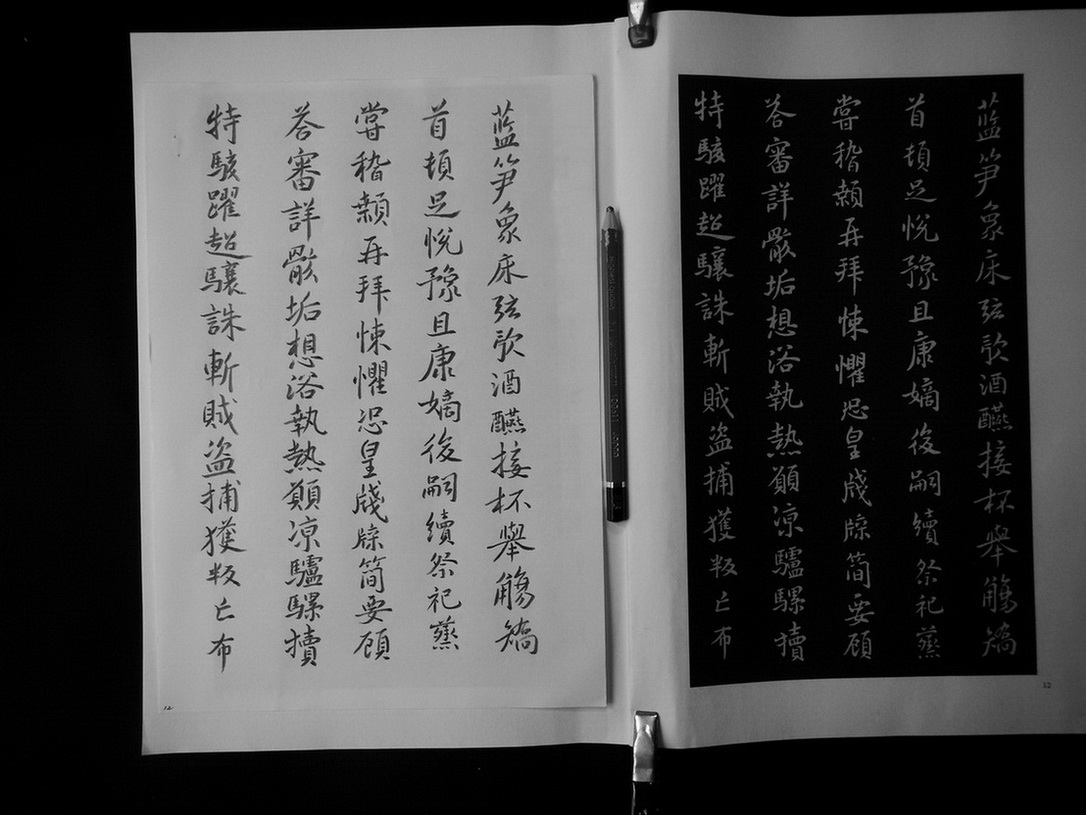 蓝笋象床弦歌酒醼接杯舉觴矯
首頓足悅豫且康嫡後嗣續祭祀蒸
嘗稽顙再拜悚懼恐皇牋牒簡要顧
荅審詳骸垢想浴執熱願凉驢騾犢
特駭躍超驤誅斬賊盜捕獲叛亡布
12
蓝笋象床弦歌酒醼接杯舉觴矯
首頓足悅豫且康嫡後嗣續祭祀蒸
嘗稽顙再拜悚懼恐皇牋牒簡要顧
荅審詳骸垢想浴執熱願凉驢騾犢
特駭躍超驤誅斬賊盜捕獲叛亡布
12